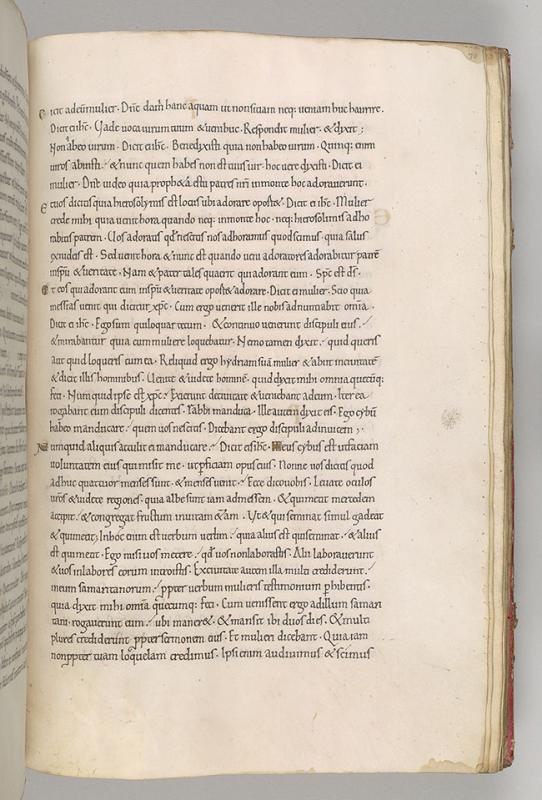 Dicit ad eū mulier. Dñe dam̄ hanc aquam ut non sitiam neq; veniam huc haurire.
Dicit ei ihc̄. Uade voca uirum tuum & veni huc. Respondit mulier. & dixit;
Non abeo uirum. Dicit ei ihc̄. Bene dixisti quia non habeo uirum. Quinq; enim
uiros abuisti. & nunc quem habes non est tuus uir. hoc vere dixisti. Dicit ei
mulier. Dñe video quia proph&a es tu patres nr̄i in monte hoc adoraverunt.
Et uos dicitis quia hierosolymis est locus ubi adorare oport&. Dicit ei ihc̄. Mulier
crede mihi quia venit hora quando neq; in monte hoc. neq; hierosolimis adho
rabitis patrem. Uos adoratis qd̄ nescitis nos adhoramus quod scimus. quia salus
ex iudeis est. Sed venit hora & nunc est quando veri adoratores adorabit̄ patrē
in spū & veritate. Nam & pater tales querit qui adorant eum. Sp̄c est d̄s.
Et eos qui adorant eum in spū & veritate oport& adorare. Dicit ei mulier. Scio quia
messias venit qui dicitur xp̄c. Cum ergo venerit ille nobis adnuntiabit omnia.
Dicit ei ihc̄. Ego sum qui loquar tecum. & continuo venerunt discipuli eius.
& mirabantur quia cum muliere loquebatur. Nemo tamen dixit. quid queris
aut quid loqueris cum ea. Reliquid ergo hydriam suā mulier & abiit in civitatē
& dicit illis hominibus. Uenite & videte hominē. quid dixit mihi omnia quecūq;
feci. Numquid ipse est xp̄c. Exierunt de civitate & veniebant ad eum. Iterea
rogabant eum discipuli dicentes. Rabbi manduca. Ille autem dixit eis. Ego cybū
habeo manducare. quem uos nescitis. Dicebant ergo discipuli ad invicem;
Numquid aliquis aculit ei manducare. Dicit eis ihc̄. Meus cybus est ut faciam
voluntatem eius qui misit me. ut pficiam opus eius. Nonne uos dicitis quod
adhuc quatuor menses sunt. & messis venit. Ecce dico vobis. Levate oculos
ur̄os & videte regiones. quia albe sunt iam ad messem. & qui metit mercedem
accipit. & congregat fructum in vitam &ānam. Ut & qui seminat simul gadeat
& qui metit; In hoc enim est verbum verum. quia alius est qui seminat. & alius
est qui metit. Ego misi vos metere. qd̄ vos non laborastis. Alii laboraverunt
& uos in labores eorum introistis. Ex civitate autem illa multi crediderunt.
in eum samaritanorum. ppter verbum mulieris testimonium phibentis.
quia dixit mihi omnia quecumq; feci. Cum venissent ergo ad illum samari
tani. rogaverunt eum. ubi maner&. & mansit ibi duos dies. & multi
plures crediderunt ppter sermonem eius. Et mulieri dicebant. Quia iam
non ppter tuam loquelam credimus. Ipsi enim audivimus & scimus